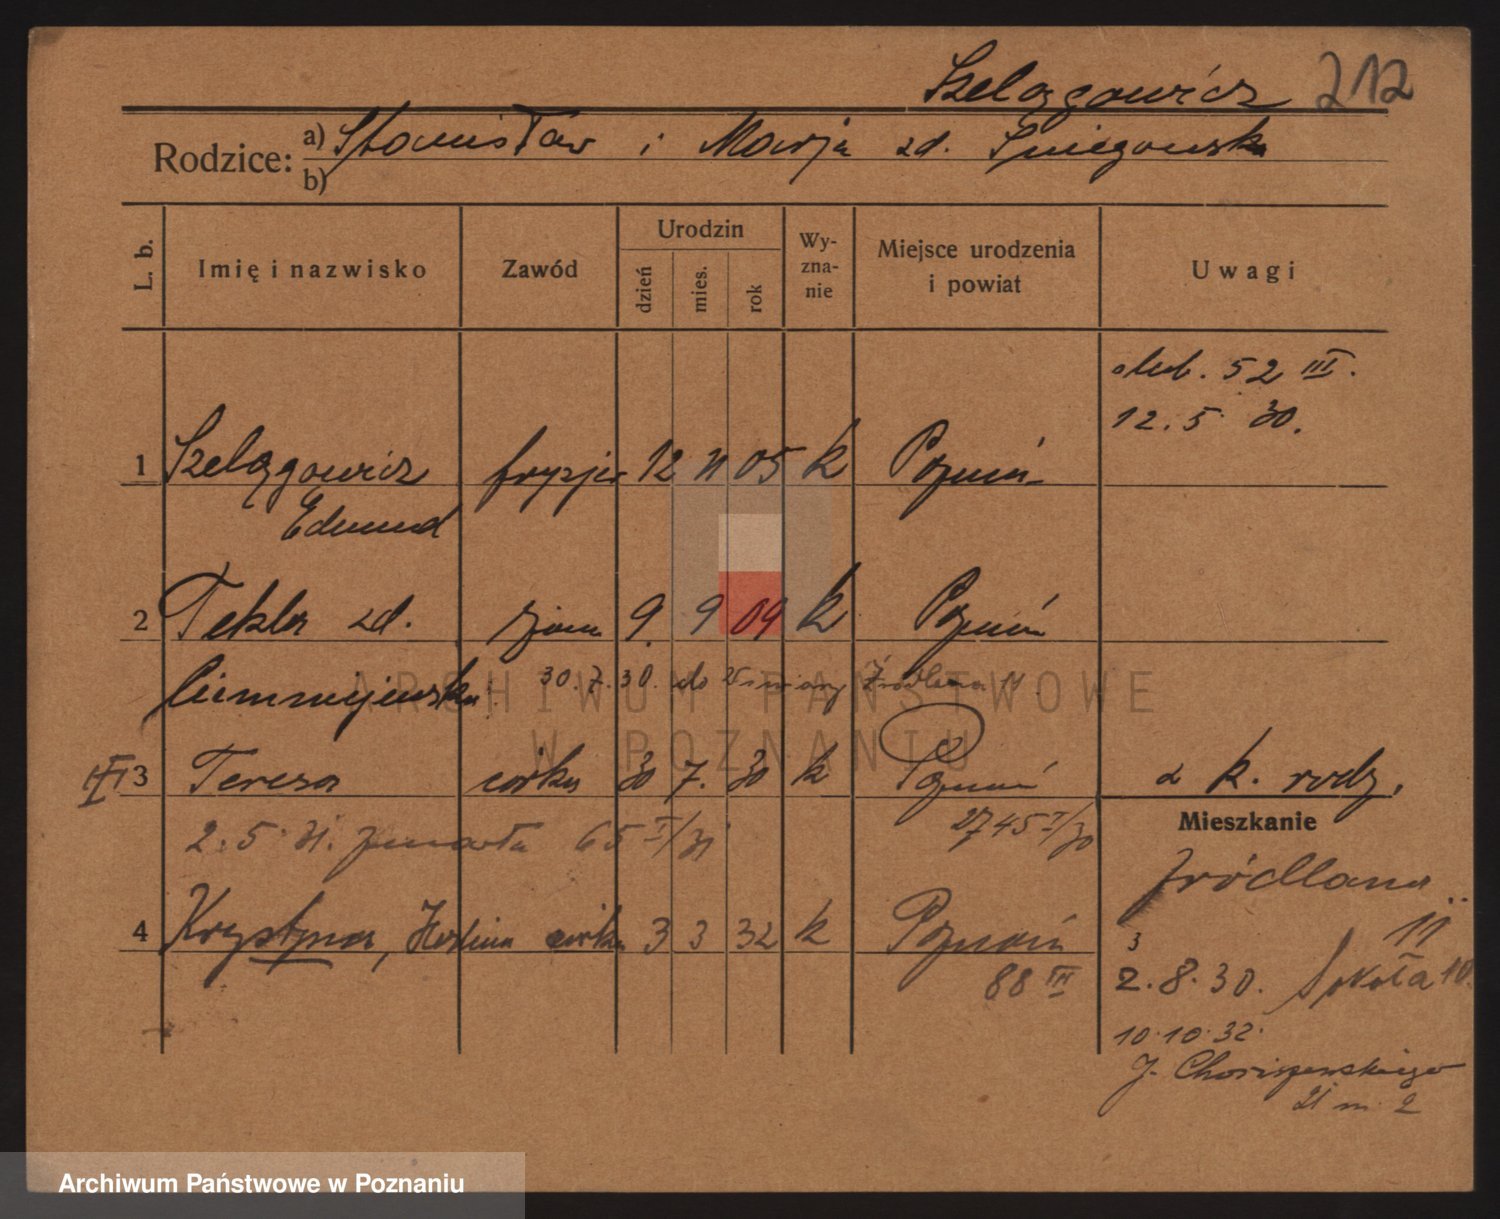 Szelągowicz 212
Rodzice: a) Stanisław i Marja zd. Śniegowska
b)
L. b.
Imię i nazwisko
Zawód
Urodzin
dzień
mies.
rok
Wy-
zna-
nie
Miejsce urodzenia
i powiat
Uwagi
ślub. 52 III.
12. 5. 30.
1 Szelągowicz fryzjer 12 11 05 k Poznań
Edmund
2 Tekla zd. żona 9. 9 09 k Poznań
30. 7. 30. do
3 Teresa córka 30 7. 30 k Poznań z k. rodz.
2. 5. 31. zmarła 65 I/31 2745 I/30
Mieszkanie
Źródlana
11
4 Krystyna, Halina córka 3 3 32 k Poznań
88 III
3
2. 8. 30. Sokoła 10.
10. 10. 32.
21 m. 2
ARCHIWUM PAŃSTWOWE
W POZNANIU
Archiwum Państwowe w Poznaniu